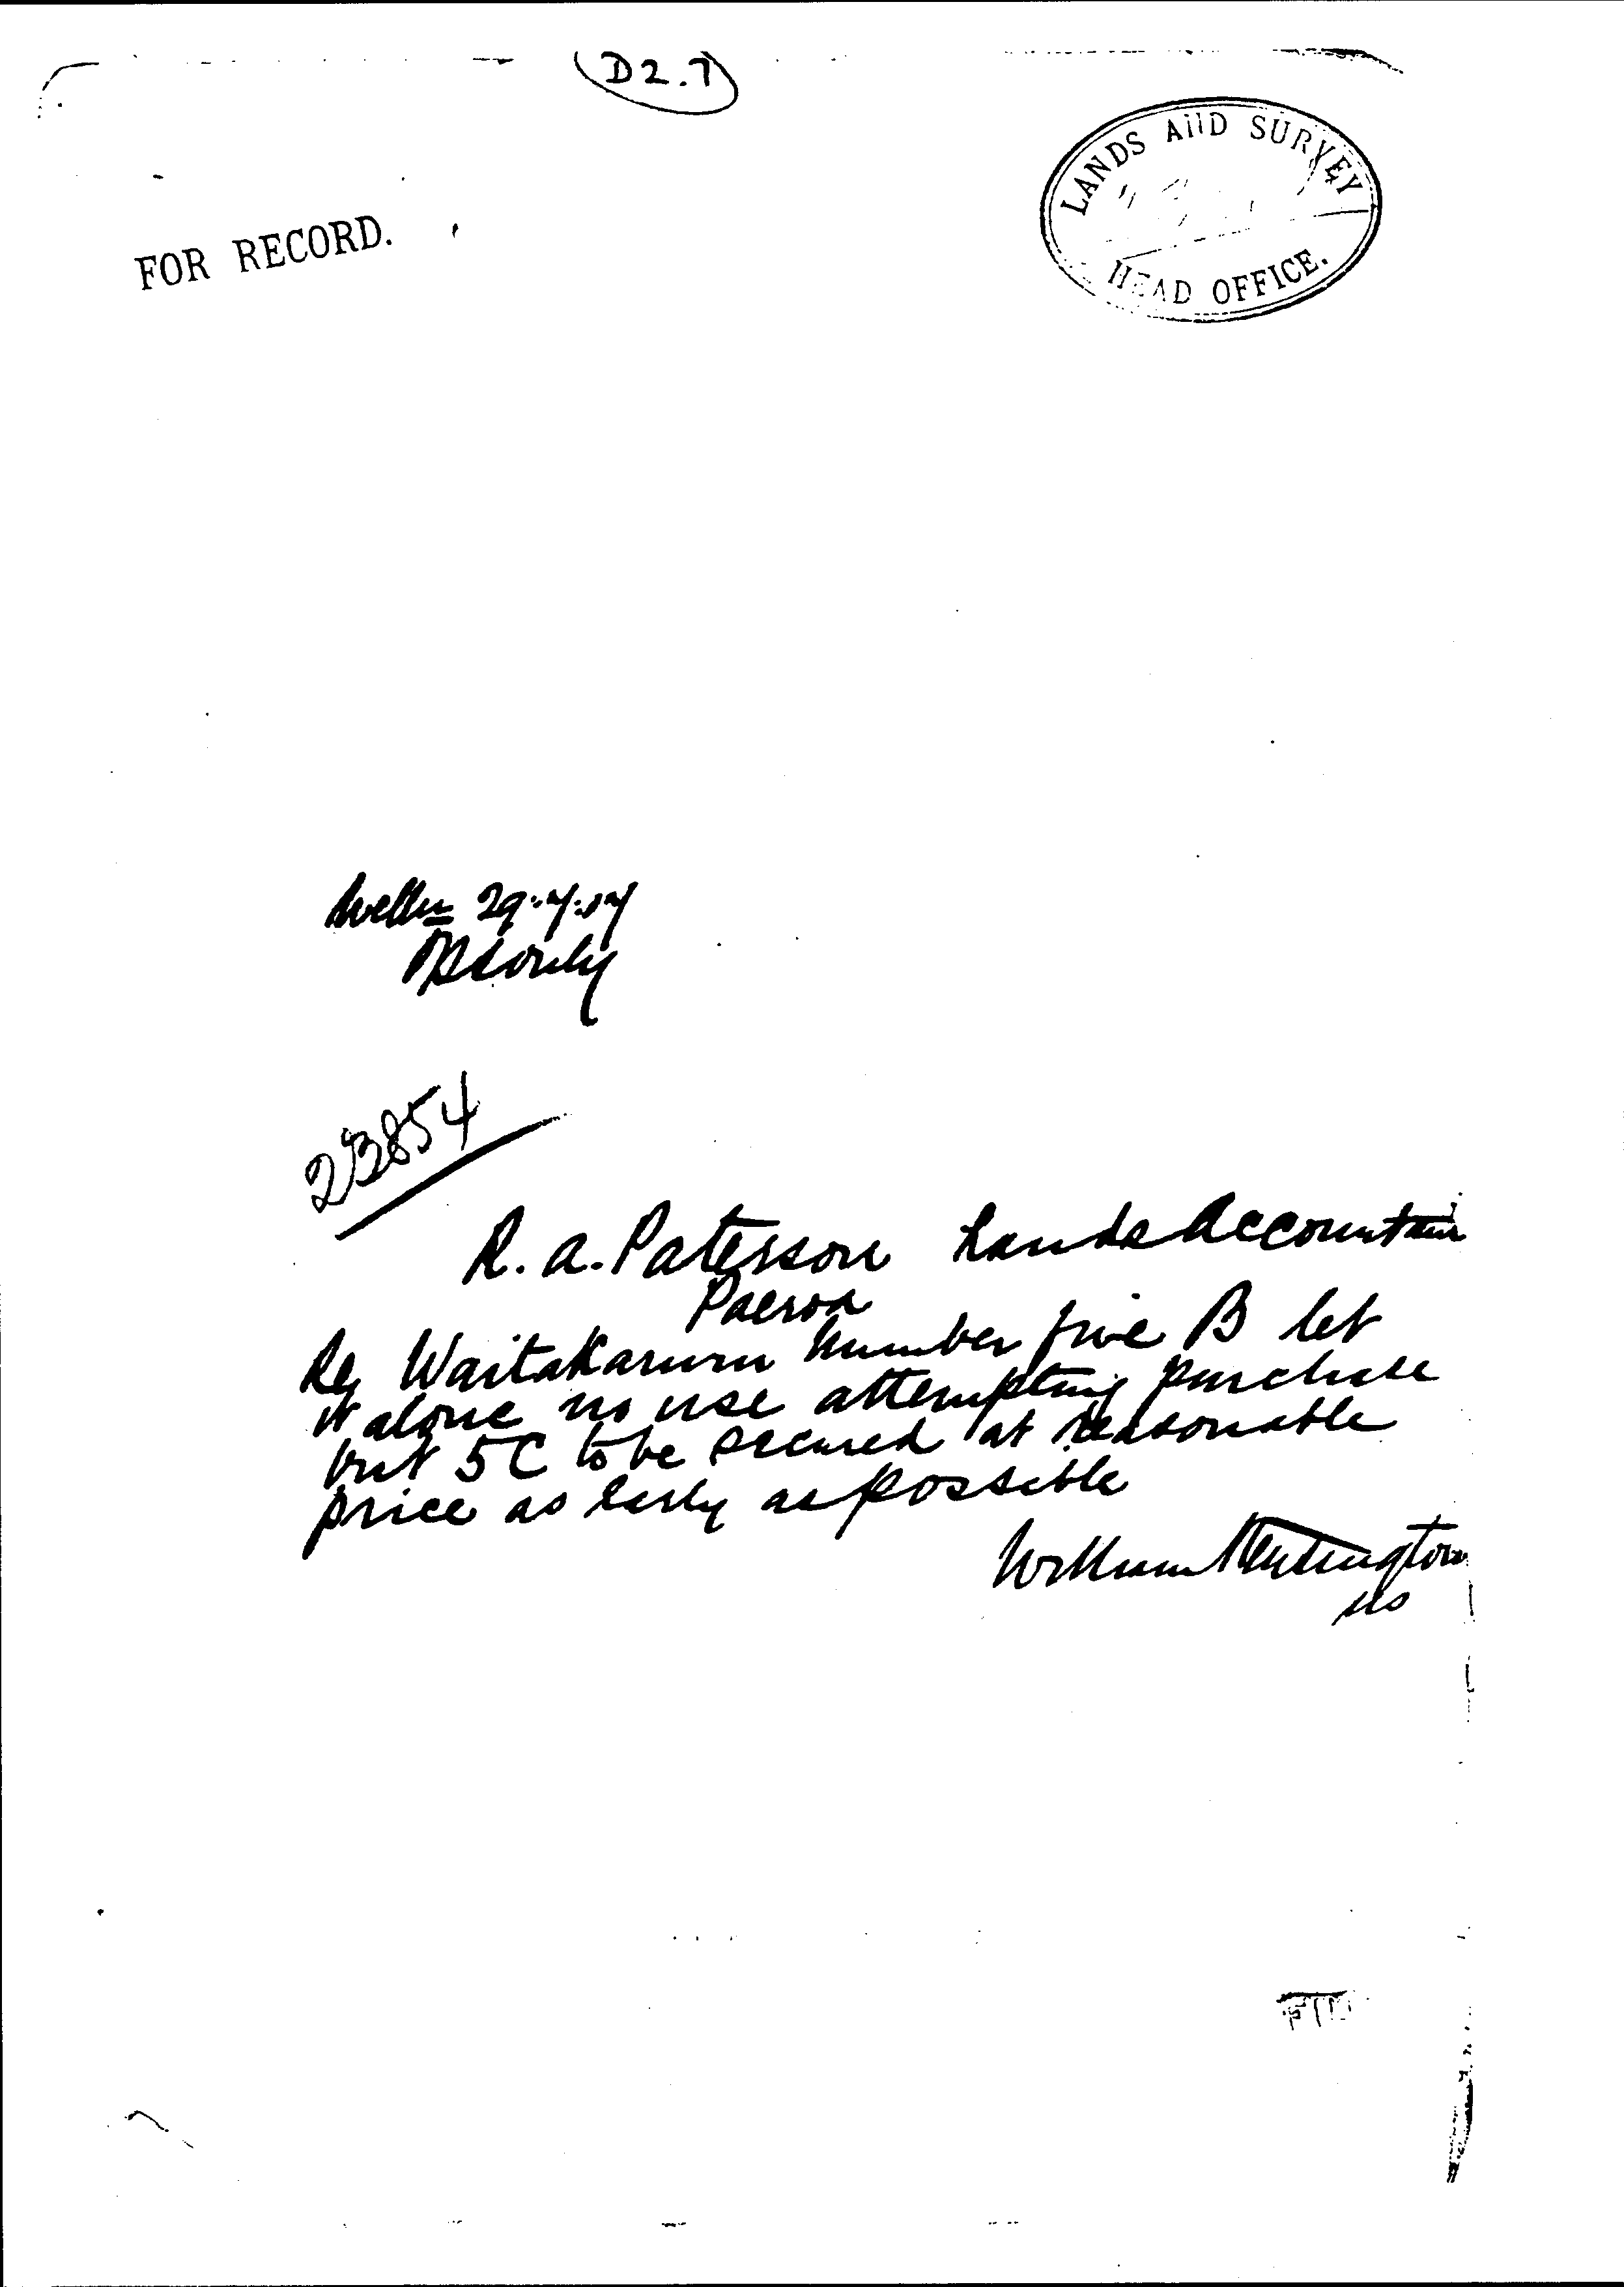 D2.7
LANDS AND SURVEY
HEAD OFFICE.
FOR RECORD.
23854
R. A. Paterson Lands Accountant
Paeroa
Re Waitakaruru Number five B let
it alone no use attempting purchase
but 5C to be secured at reasonable
price as early as possible
William